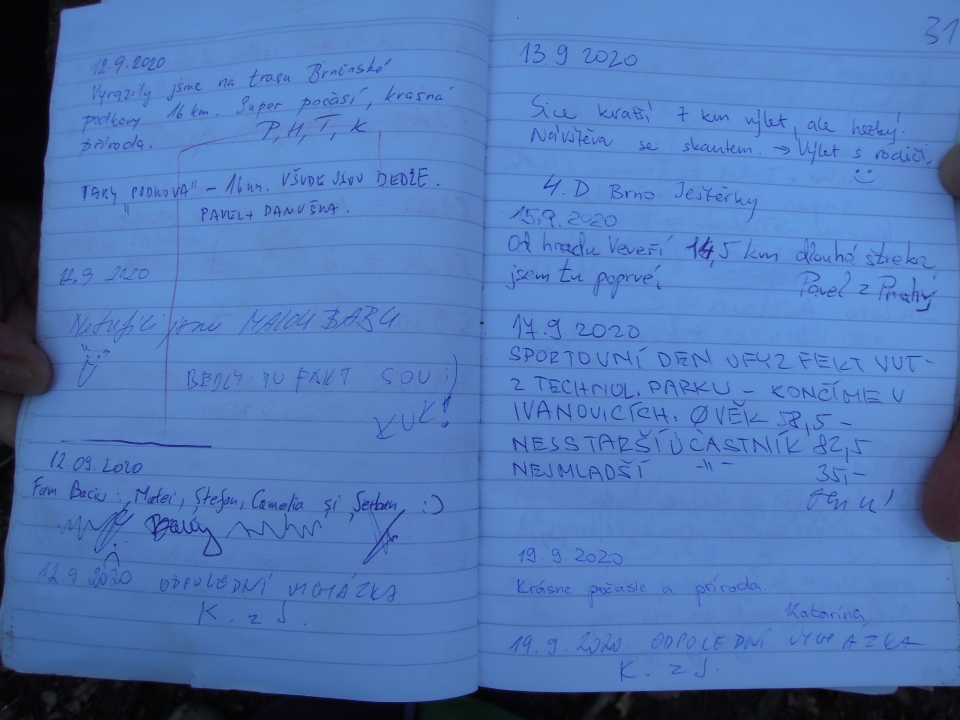 12.9.2020
Vyrazily jsme na trasu Brněnské
podkovy 16 km. Super počasí, krásná
příroda.
P, H, T, K
TAKY "PODKOVA" - 16 km. VŠUDE JSOU BEDLE.
PAVEL + DANUŠKA.
12.9 2020
Netrefili jsme MALOU BABU
BEDLY TU FAKT SOU :)
KUK!
12.09.2020
Fam Baciu: Matei, Ștefan, Camelia și Șerban :)
12.9 2020 ODPOLEDNÍ VYCHÁZKA
K. z J.
31
13.9 2020
Sice kratší 7 km výlet, ale hezký.
Návštěva se skautem. → Výlet s rodiči.
4. D Brno Ještěrky
15.9.2020
Od hradu Veveří 14,5 km dlouhá štreka,
jsem tu poprvé.
Pavel z Prahy
17.9 2020
SPORTOVNÍ DEN UFYZ FEKT VUT-
Z TECHNOL. PARKU - KONČÍME V
IVANOVICÍCH. Ø VĚK 58,5 -
NESSTARŠÍ ÚČASTNÍK 82,5
NEJMLADŠÍ -"- 35,-
19.9.2020
Krásne počasie a príroda.
Katarína
19.9.2020 ODPOLEDNÍ VYCHÁZKA
K. z J.